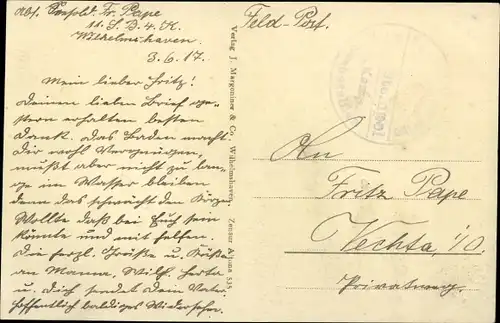 Abs. Fr. Pape
11. S. D. 4. K.
Wilhelmshaven
3.6.17.
Mein lieber Fritz!
Deinen lieben Brief ge-
stern erhalten besten
Dank. Das Baden macht
Dir wohl Vergnügen,
mußt aber nicht zu lan-
ge im Wasser bleiben
denn das schwächt den Körper
Wollte daß bei Euch sein
könnte und mit helfen.
Die herzl. Grüße u. Küße
an Mamma, Wilh. Herta
u. Dich sendet Dein Vater
Hoffentlich baldiges Wiedersehn.
Verlag J. Margoniner & Co., Wilhelmshaven. Zensur Altona 535
Feld-Post.
An
Fritz Pape
Vechta i/O.